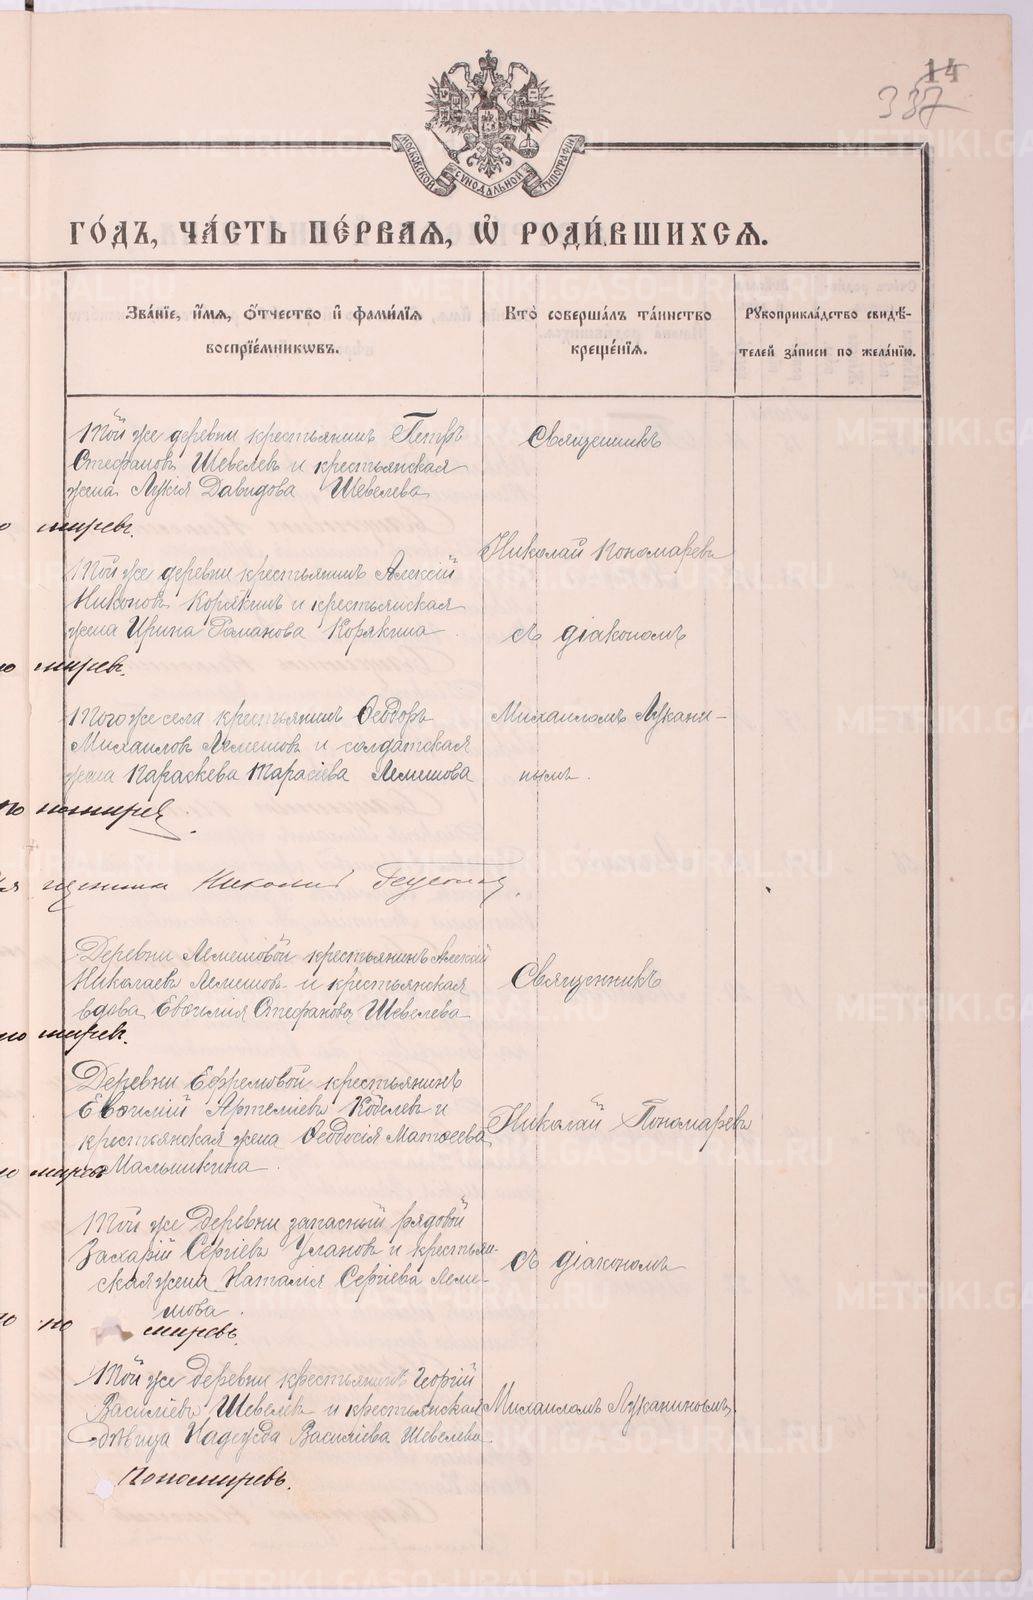 14
337
МОСКОВСКОЙ СѴНОДАЛЬНОЙ ТИПОГРАФІИ
ГО́ДЪ, ЧА́СТЬ ПЕ́РВАѦ, Ѡ҆ РОДИ́ВШИХСѦ.
Зва́нїе, и҆́мѧ, ѻ҆́тчество и҆ фами́лїѧ
воспрїе́мникѡвъ.
Кто̀ соверша́лъ та́инство
креще́нїѧ.
Рꙋкоприкла́дство свидѣ́-
телей за́писи по жела́нїю.
Той же деревни крестьянинъ Петръ
Стефановъ Шевелевъ и крестьянская
жена Лукія Давидова Шевелева
Священникъ
Николай Пономаревъ
Той же деревни крестьянинъ Алексій
Никоновъ Корякинъ и крестьянская
жена Ирина Романова Корякина
съ діакономъ
Того же села крестьянинъ Ѳеодоръ
Михаиловъ Лемешовъ и солдатская
жена Параскева Тарасіева Лемешова
Михаиломъ Лукани-
нымъ.
Николай
Деревни Лемешовой крестьянинъ Алексій
Николаевъ Лемешовъ и крестьянская
вдова Евѳимія Стефанова Шевелева
Священникъ
Деревни Ефремовой крестьянинъ
Евѳимій Артеміевъ Кобелевъ и
крестьянская жена Ѳеодосія Матѳеева
Мальшикина.
Николай Пономаревъ
Той же деревни запасный рядовой
Захарій Сергіевъ Улановъ и крестьян-
ская жена Наталія Сергіева Леме-
шова.
съ діакономъ
Той же деревни крестьянинъ Георгій
Василіевъ Шевелевъ и крестьянская
дѣвица Надежда Василіева Шевелева
Михаиломъ Луканинымъ.
Пономаревъ.
METRIKI.GASO-URAL.RU